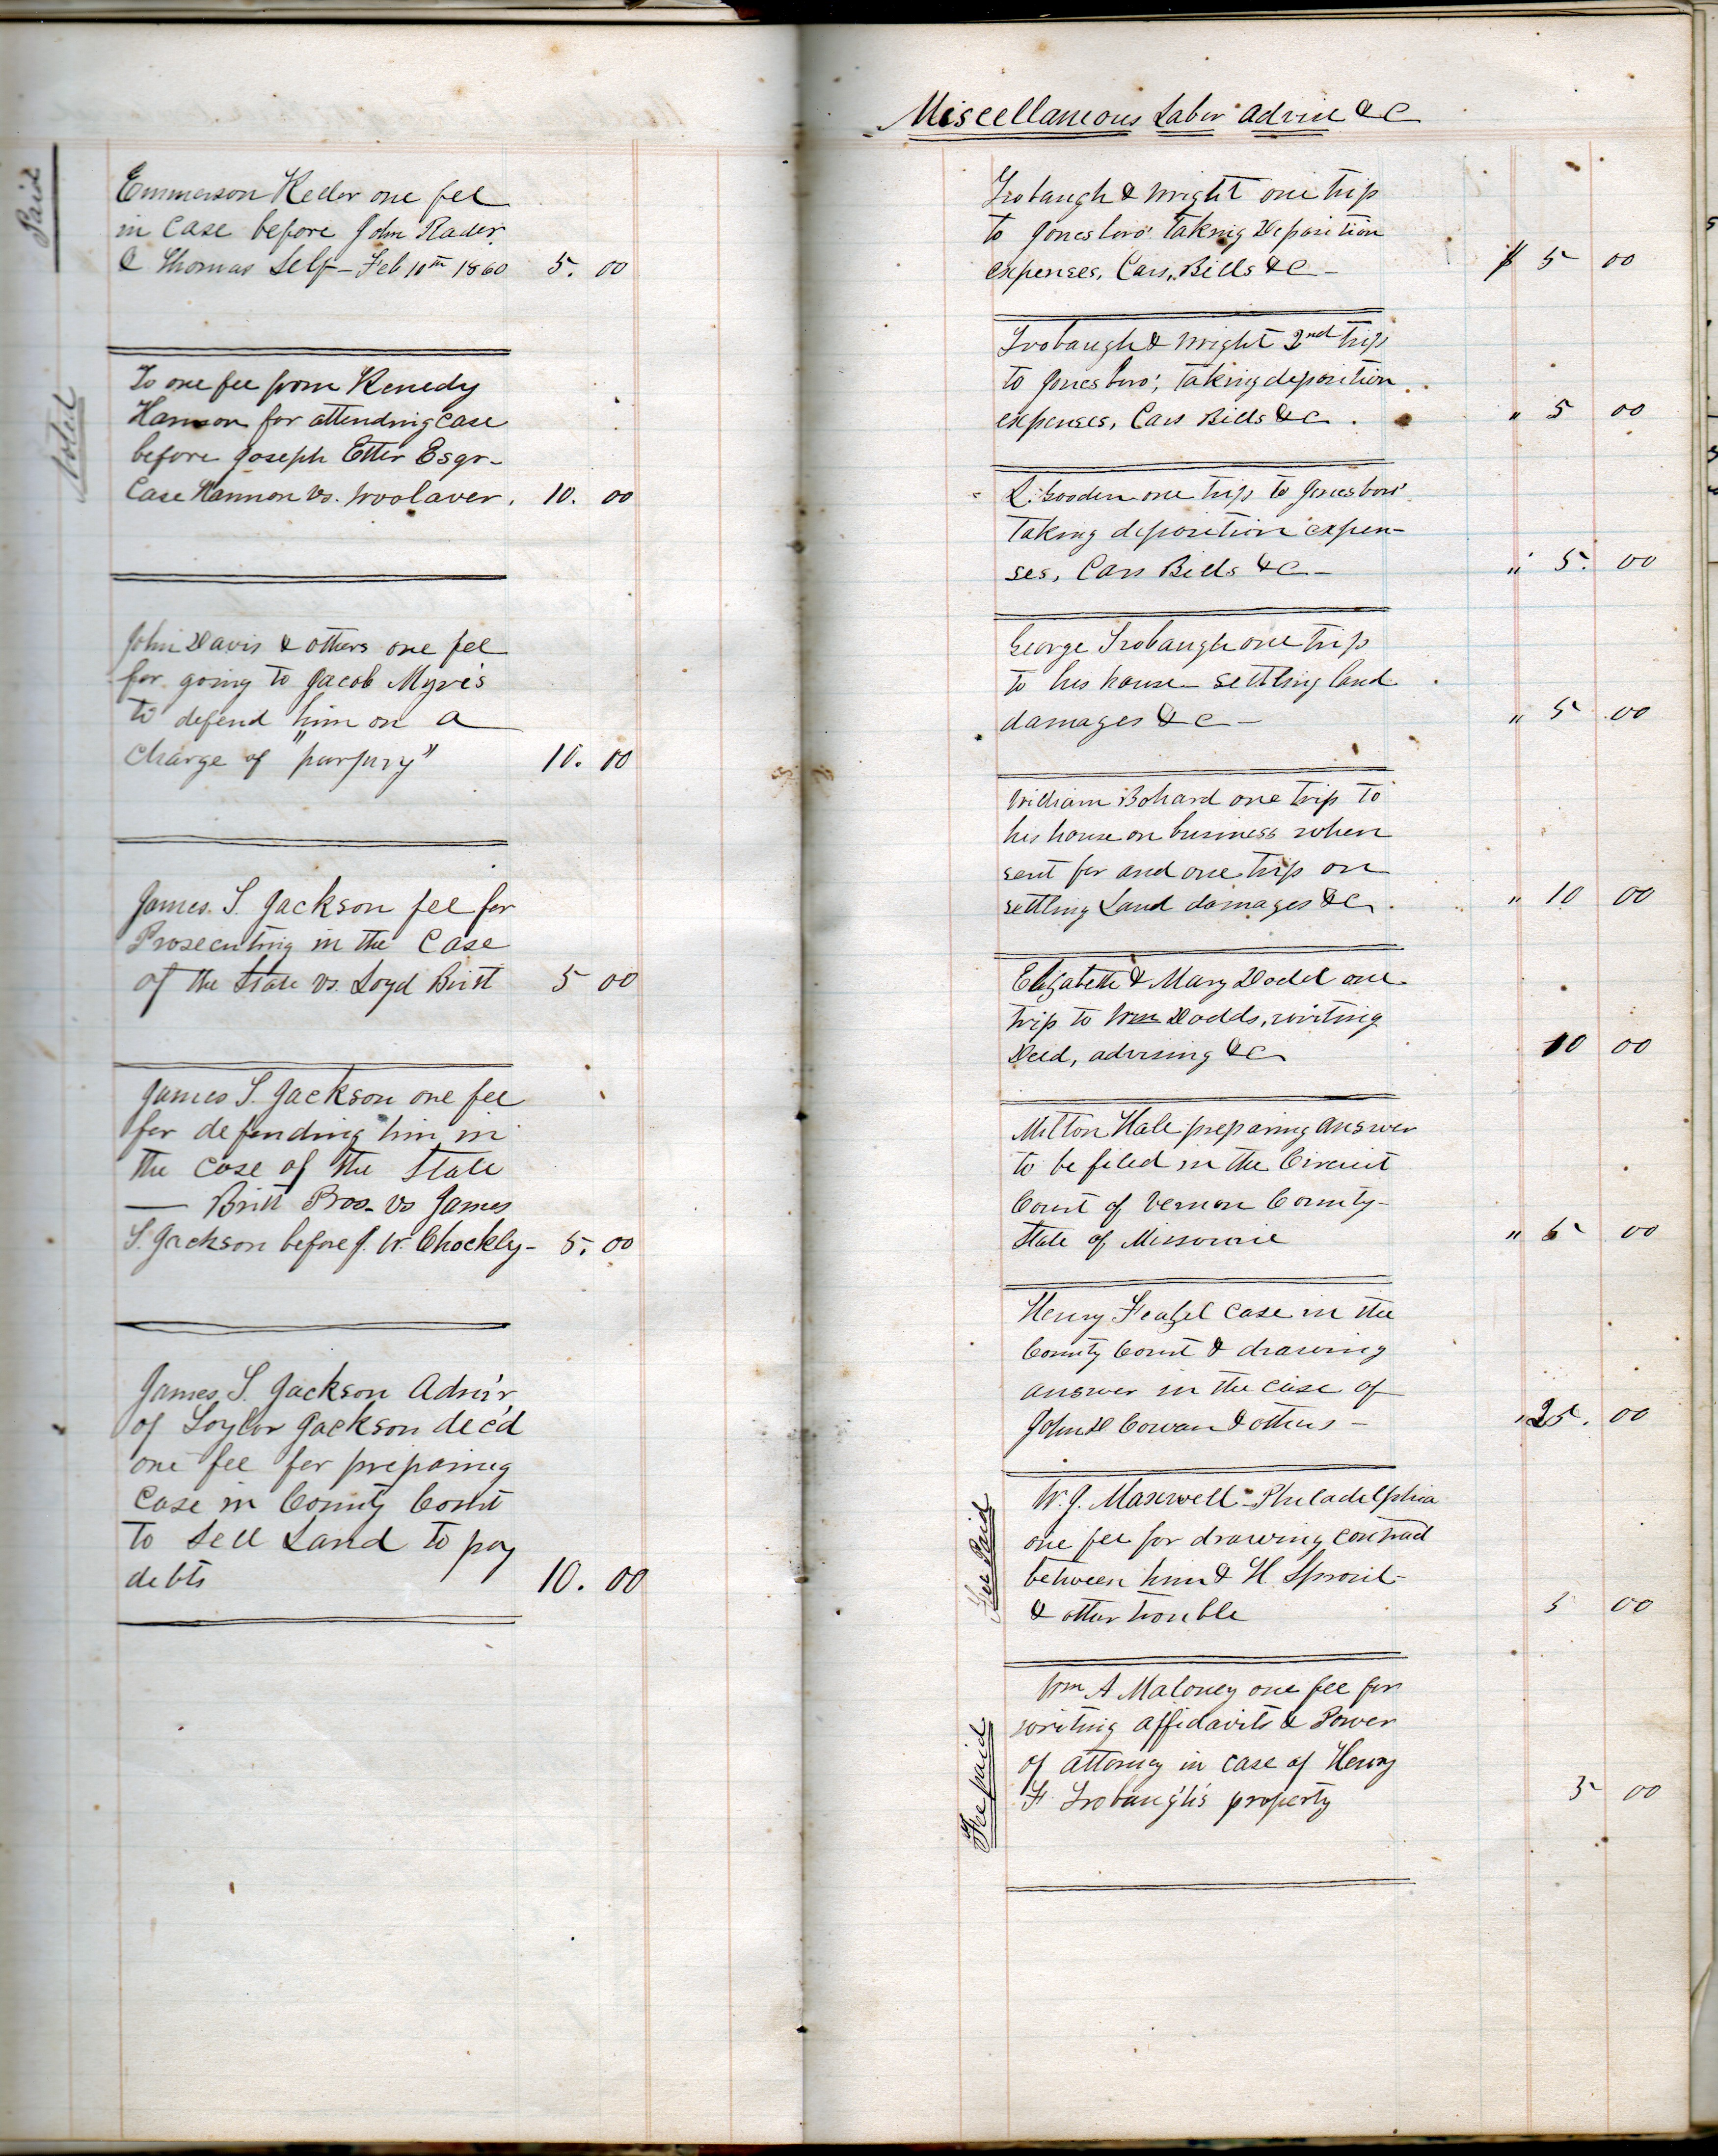 Paid
Emmerson Keller one fee
in Case before John Rader.
& Thomas Self - Feb 10th 1860 5. 00
Noted
To one fee from Kenedy
Harmon for attending case
before Joseph Etter Esqr-
Case Harmon vs. Woolaver. 10. 00
John Davis & others one fee
for going to Jacob Myre's
to defend him on a
charge of "purjury" 10. 00
James. S. Jackson fee for
Prosecuting in the Case
of the State vs. Loyd Britt 5 00
James S. Jackson one fee
for defending him in
the case of the State
— Britt Pros- vs James
S. Jackson before J. W. Chockly- 5. 00
James, S. Jackson Adm'r
of Loyler Jackson dec'd
one fee for prepairing
Case in County Court
to Sell Land to pay
debts 10. 00
Miscellaneous Labor Advice &C
Trobaugh & Wright one trip
to Jonesboro' taking Deposition
expenses, Cars, Bills &C - $ 5 00
Trobaugh & Wright 2nd trip
to Jonesboro', taking deposition
expenses, Cars Bills &C. " 5 00
L. Gooden one trip to Jonesboro'
taking deposition expen-
ses, Cars Bills &C - " 5. 00
George Trobaugh one trip
to his house settling land
damages &C - " 5 00
William Bohard one trip to
his house on business when
sent for and one trip on
settling Land damages &C. " 10 00
Elizabeth & Mary Dodd one
trip to Wm Dodds, writing
Deed, advising &C 10 00
Milton Hale preparing answer
to be filed in the Circuit
Court of Vernon County-
State of Missourie " 5 00
Henry Feazel case in the
County Court & drawing
answer in the case of
John D Cowan & others - " 25. 00
Fee Paid
W. J. Maxwell - Philadelphia
one fee for drawing contract
between him & H. Sproul-
& other trouble 5 00
Fee paid
Wm A Maloney one fee for
writing affidavits & Power
of attorney in case of Henry
F. Trobaugh's property 5 00